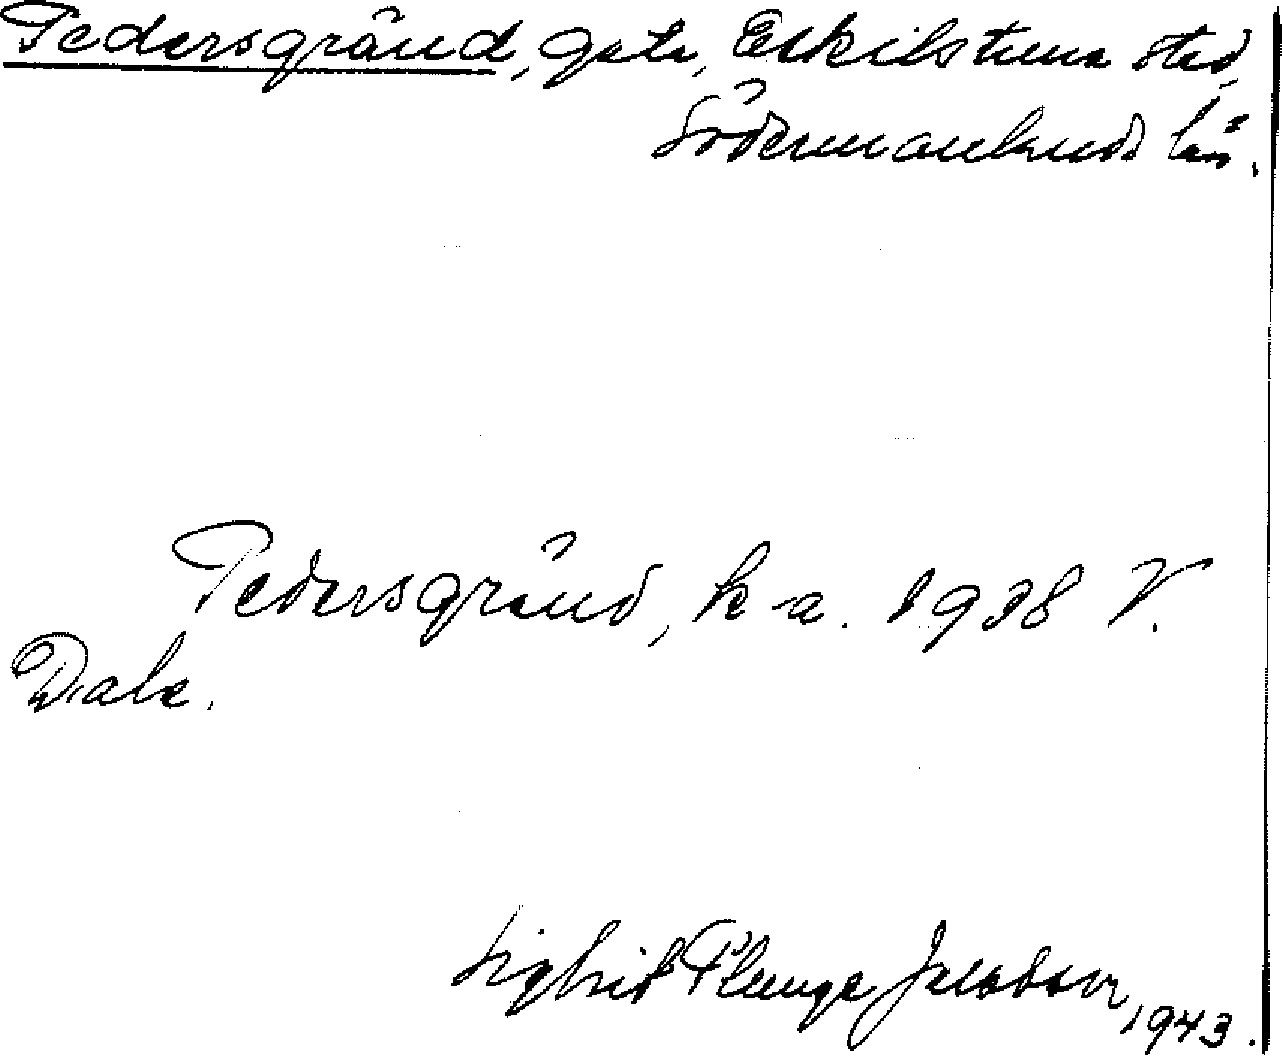 Pedersgränd, gata, Eskilstuna stad,
Södermanlands län.
Pedersgränd, k a. 1938 V.
Dala.
Sigbrit Plænge Jacobson, 1943.